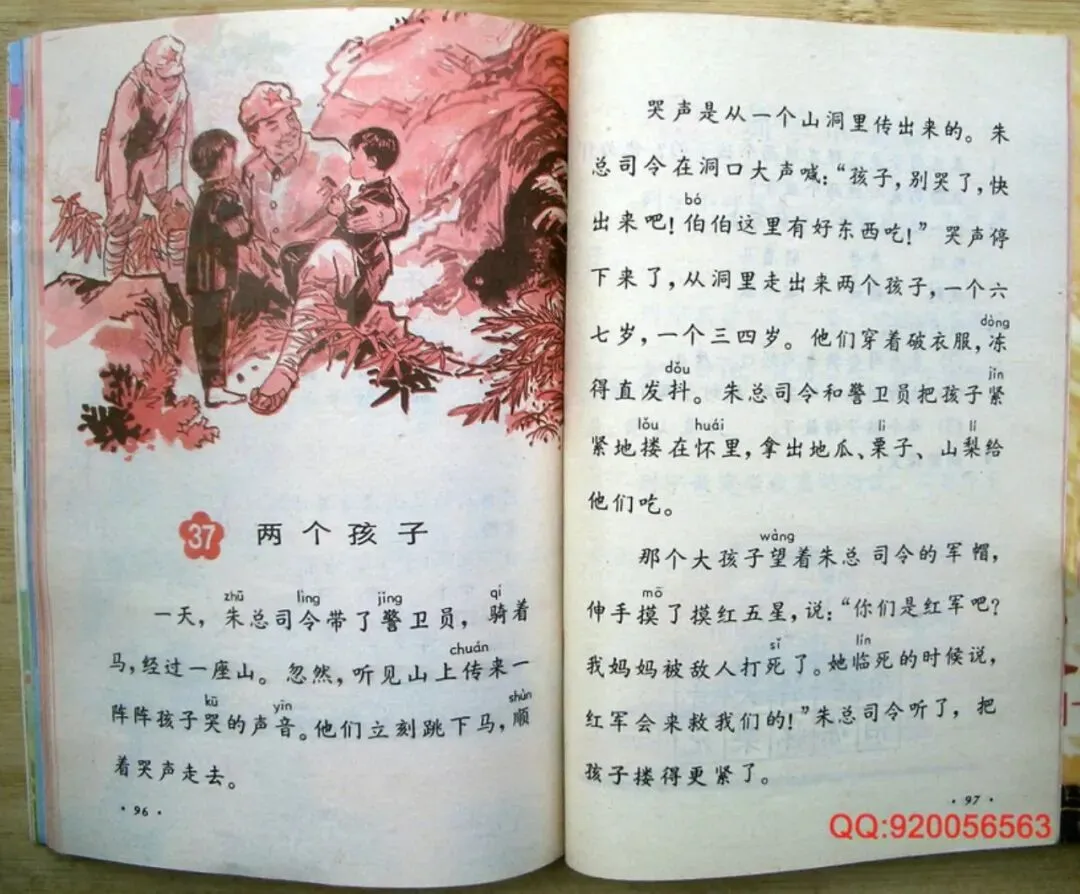 37 两个孩子
zhū lìng jǐng qí
一天，朱总司令带了警卫员，骑着
chuán
马，经过一座山。忽然，听见山上传来一
kū yīn shùn
阵阵孩子哭的声音。他们立刻跳下马，顺
着哭声走去。
·96·
哭声是从一个山洞里传出来的。朱
总司令在洞口大声喊：“孩子，别哭了，快
bó
出来吧！伯伯这里有好东西吃！”哭声停
下来了，从洞里走出来两个孩子，一个六
dòng
七岁，一个三四岁。他们穿着破衣服，冻
dǒu jǐn
得直发抖。朱总司令和警卫员把孩子紧
lǒu huái lì lí
紧地搂在怀里，拿出地瓜、栗子、山梨给
他们吃。
wàng
那个大孩子望着朱总司令的军帽，
mō
伸手摸了摸红五星，说：“你们是红军吧？
sǐ lín
我妈妈被敌人打死了。她临死的时候说，
红军会来救我们的！”朱总司令听了，把
孩子搂得更紧了。
·97·
QQ:920056563